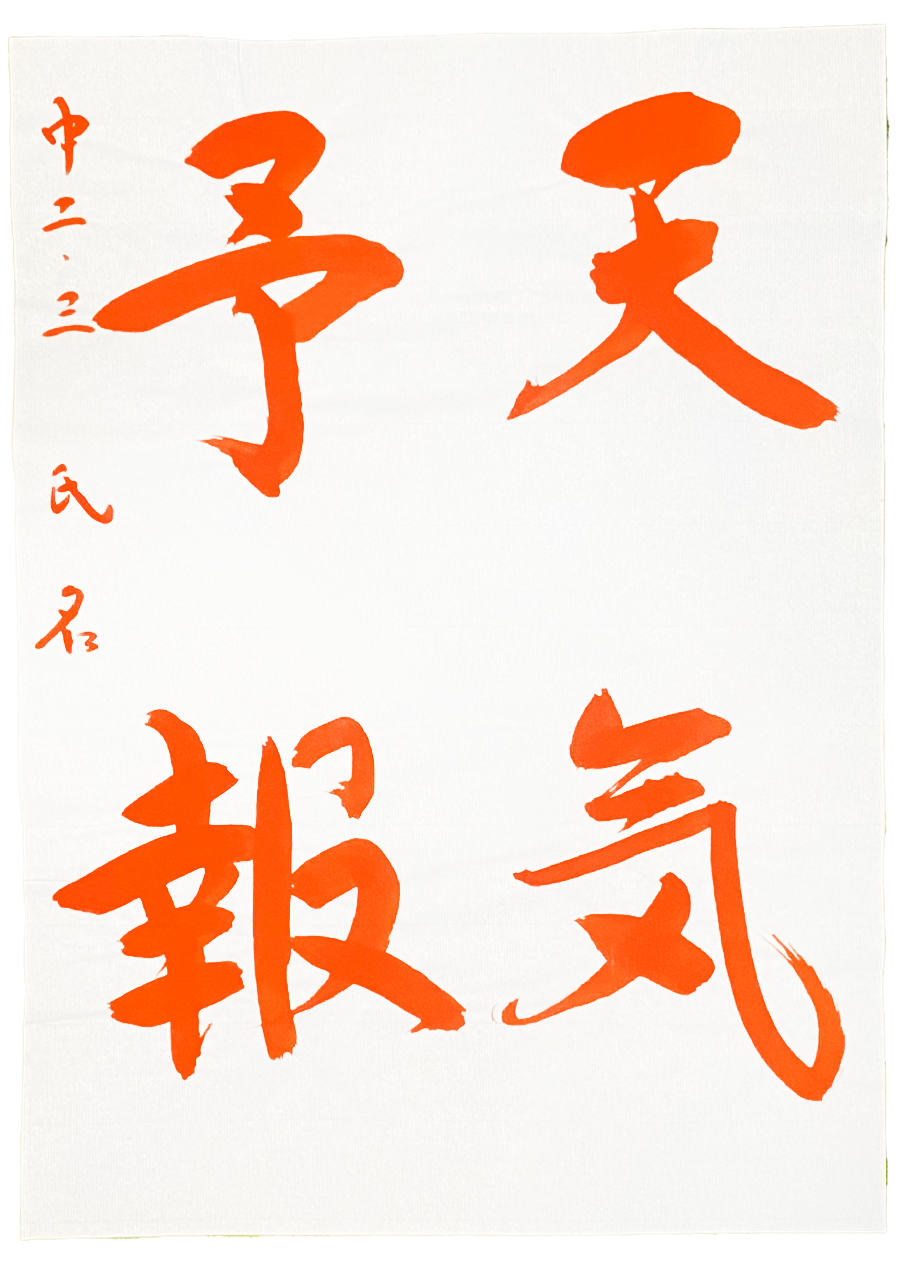 天気
予報
中二・三 氏名